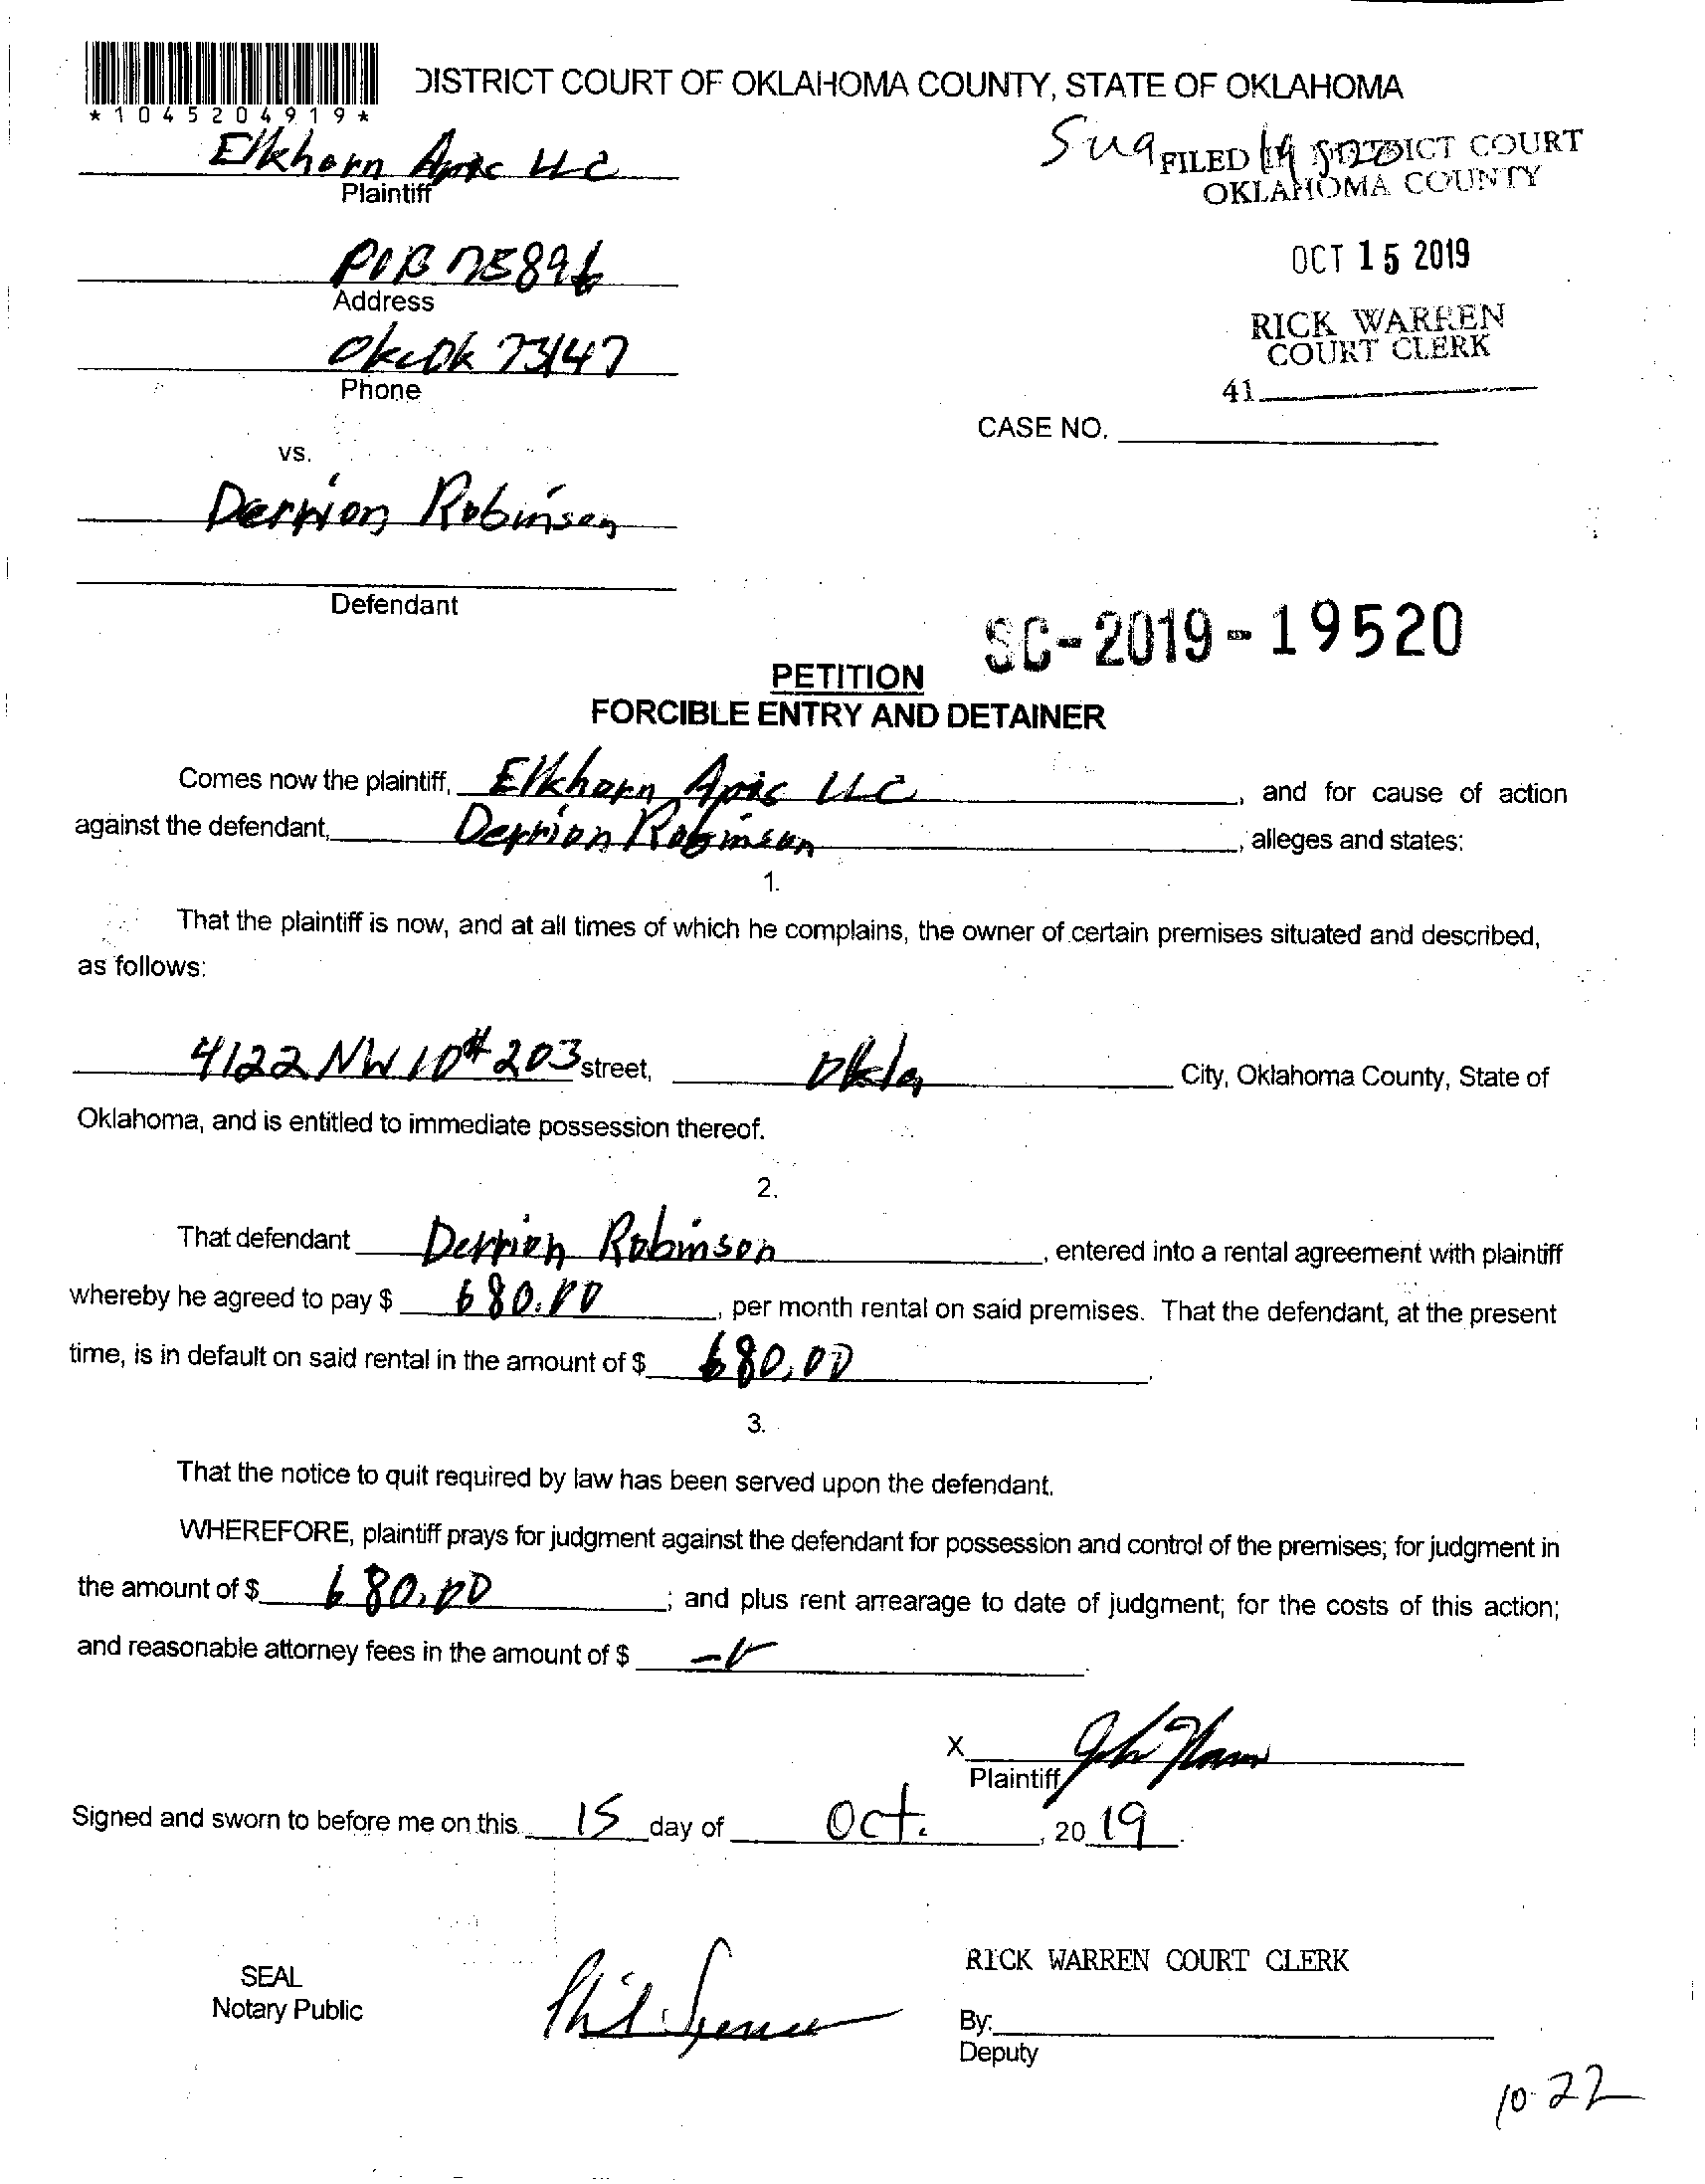 *1045204919*
DISTRICT COURT OF OKLAHOMA COUNTY, STATE OF OKLAHOMA
Elkhorn Apts LLC
Plaintiff
FILED DISTRICT COURT
OKLAHOMA COUNTY
POB 75896
Address
OCT 15 2019
Okc Ok 73147
Phone
RICK WARREN
COURT CLERK
41
CASE NO.
vs.
Derrion Robinson
Defendant
SC-2019-19520
PETITION
FORCIBLE ENTRY AND DETAINER
Comes now the plaintiff, Elkhorn Apts LLC, and for cause of action
against the defendant, Derrion Robinson, alleges and states:
1.
That the plaintiff is now, and at all times of which he complains, the owner of certain premises situated and described,
as follows:
4122 NW 10 # 203 street, Okla City, Oklahoma County, State of
Oklahoma, and is entitled to immediate possession thereof.
2.
That defendant Derrion Robinson, entered into a rental agreement with plaintiff
whereby he agreed to pay $ 680.00, per month rental on said premises. That the defendant, at the present
time, is in default on said rental in the amount of $ 680.00.
3.
That the notice to quit required by law has been served upon the defendant.
WHEREFORE, plaintiff prays for judgment against the defendant for possession and control of the premises; for judgment in
the amount of $ 680.00; and plus rent arrearage to date of judgment; for the costs of this action;
and reasonable attorney fees in the amount of $
X
Plaintiff
Signed and sworn to before me on this 15 day of Oct., 2019.
SEAL
Notary Public
RICK WARREN COURT CLERK
By:
Deputy
10-22